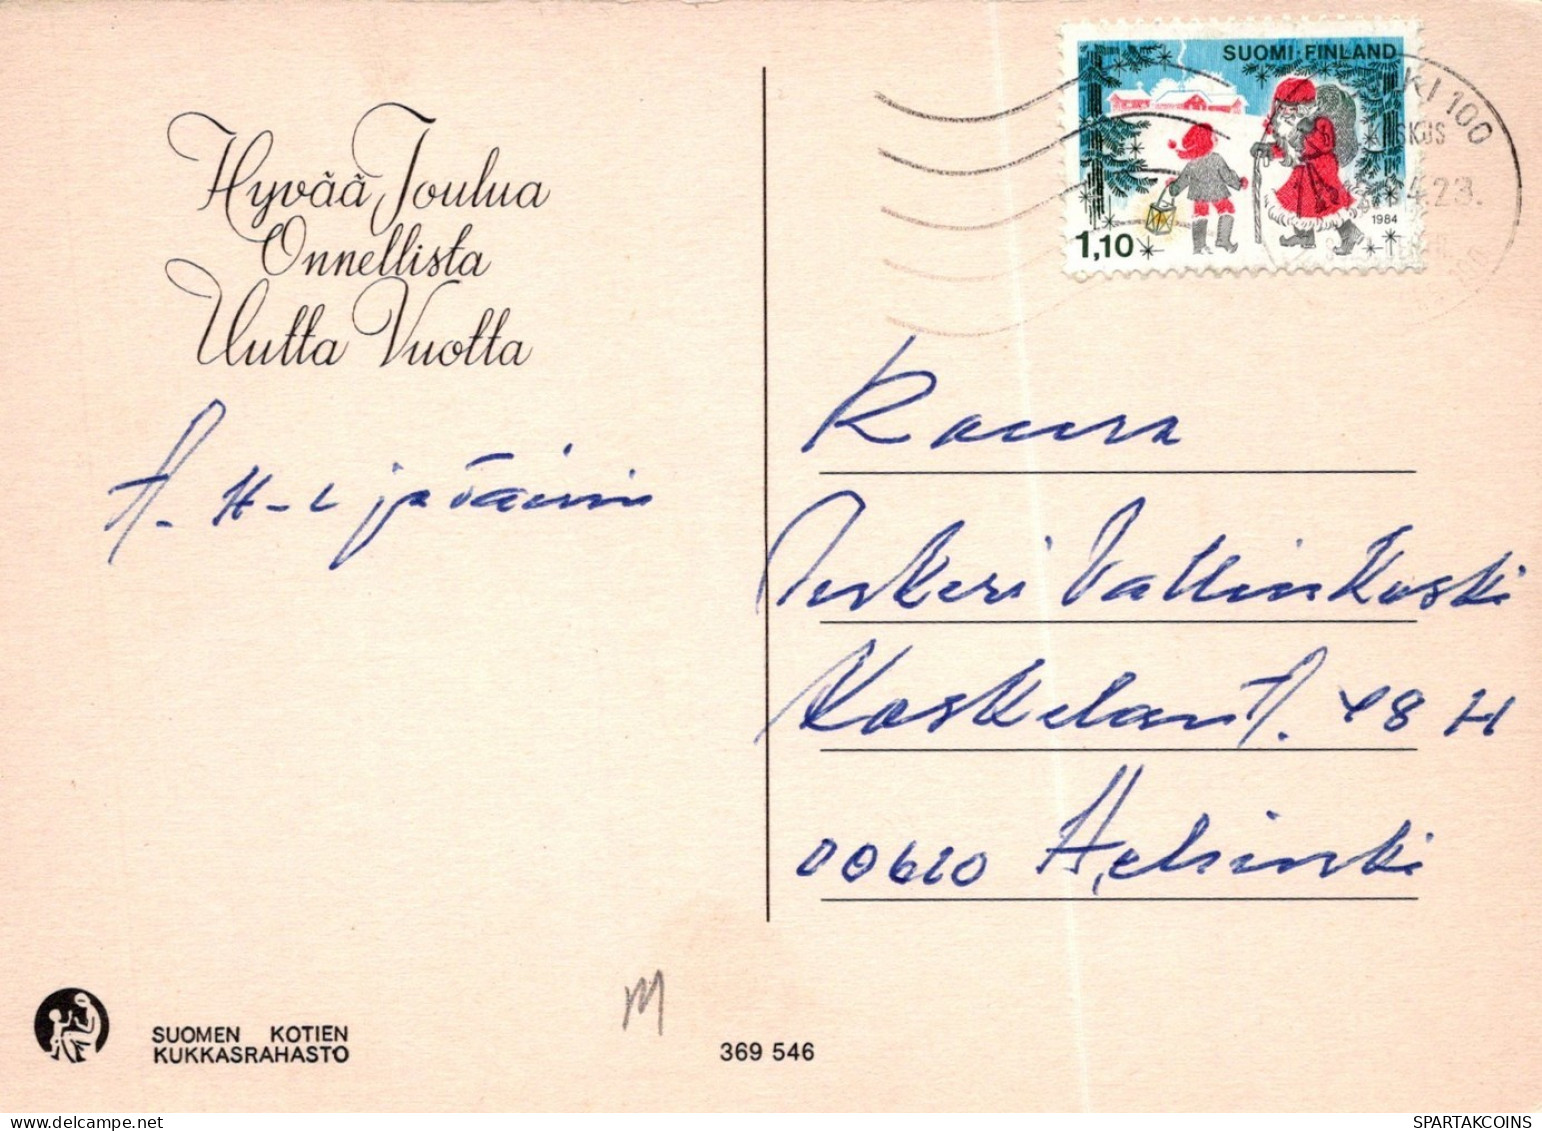 Hyvää Joulua
Onnellista
Uutta Vuotta
A-H-L ja Täinin
SUOMI-FINLAND
1,10
1984
KI 100
KESKUS
4.23.
Raura
Vallinkoski
Koskelant. 48 H
00610 Helsinki
SUOMEN KOTIEN
KUKKASRAHASTO
M
369 546
SPARTAKCOINS